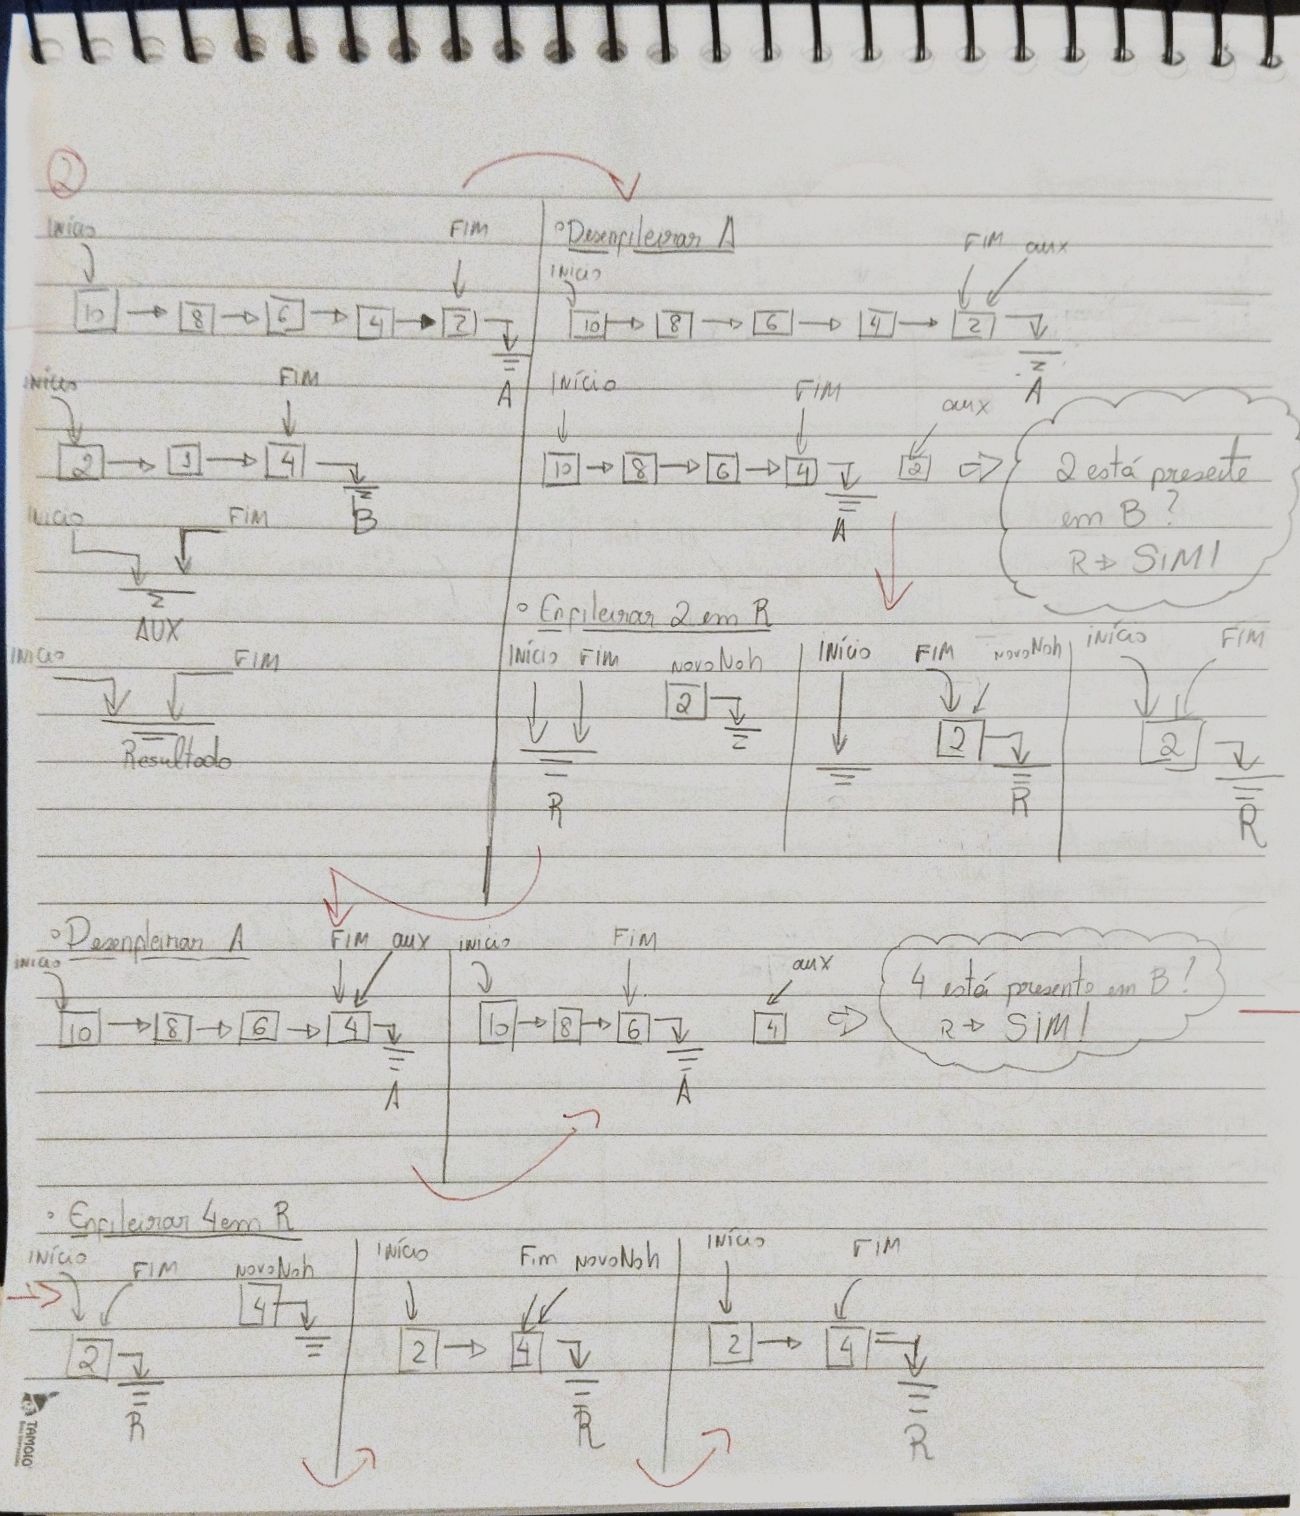 2
Início
FIM
10 8 6 4 2
A
Início
FIM
2 3 4
B
Início
FIM
AUX
Início
FIM
Resultado
°Desenfileirar A
Início
FIM aux
10 8 6 4 2
A
Início
FIM
aux
10 8 6 4 2
A
2 está presente
em B?
R → SIM!
° Enfileirar 2 em R
Início FIM novoNoh
2
R
Início FIM novoNoh
2
R
Início FIM
2
R
°Desenfileirar A
Início
FIM aux
10 8 6 4
A
Início
FIM
aux
10 8 6 4
A
4 está presente em B?
R → SIM!
° Enfileirar 4 em R
Início
FIM
novoNoh
4
2
R
Início
Fim novoNoh
2 4
R
Início
FIM
2 4
R
TAMOIO